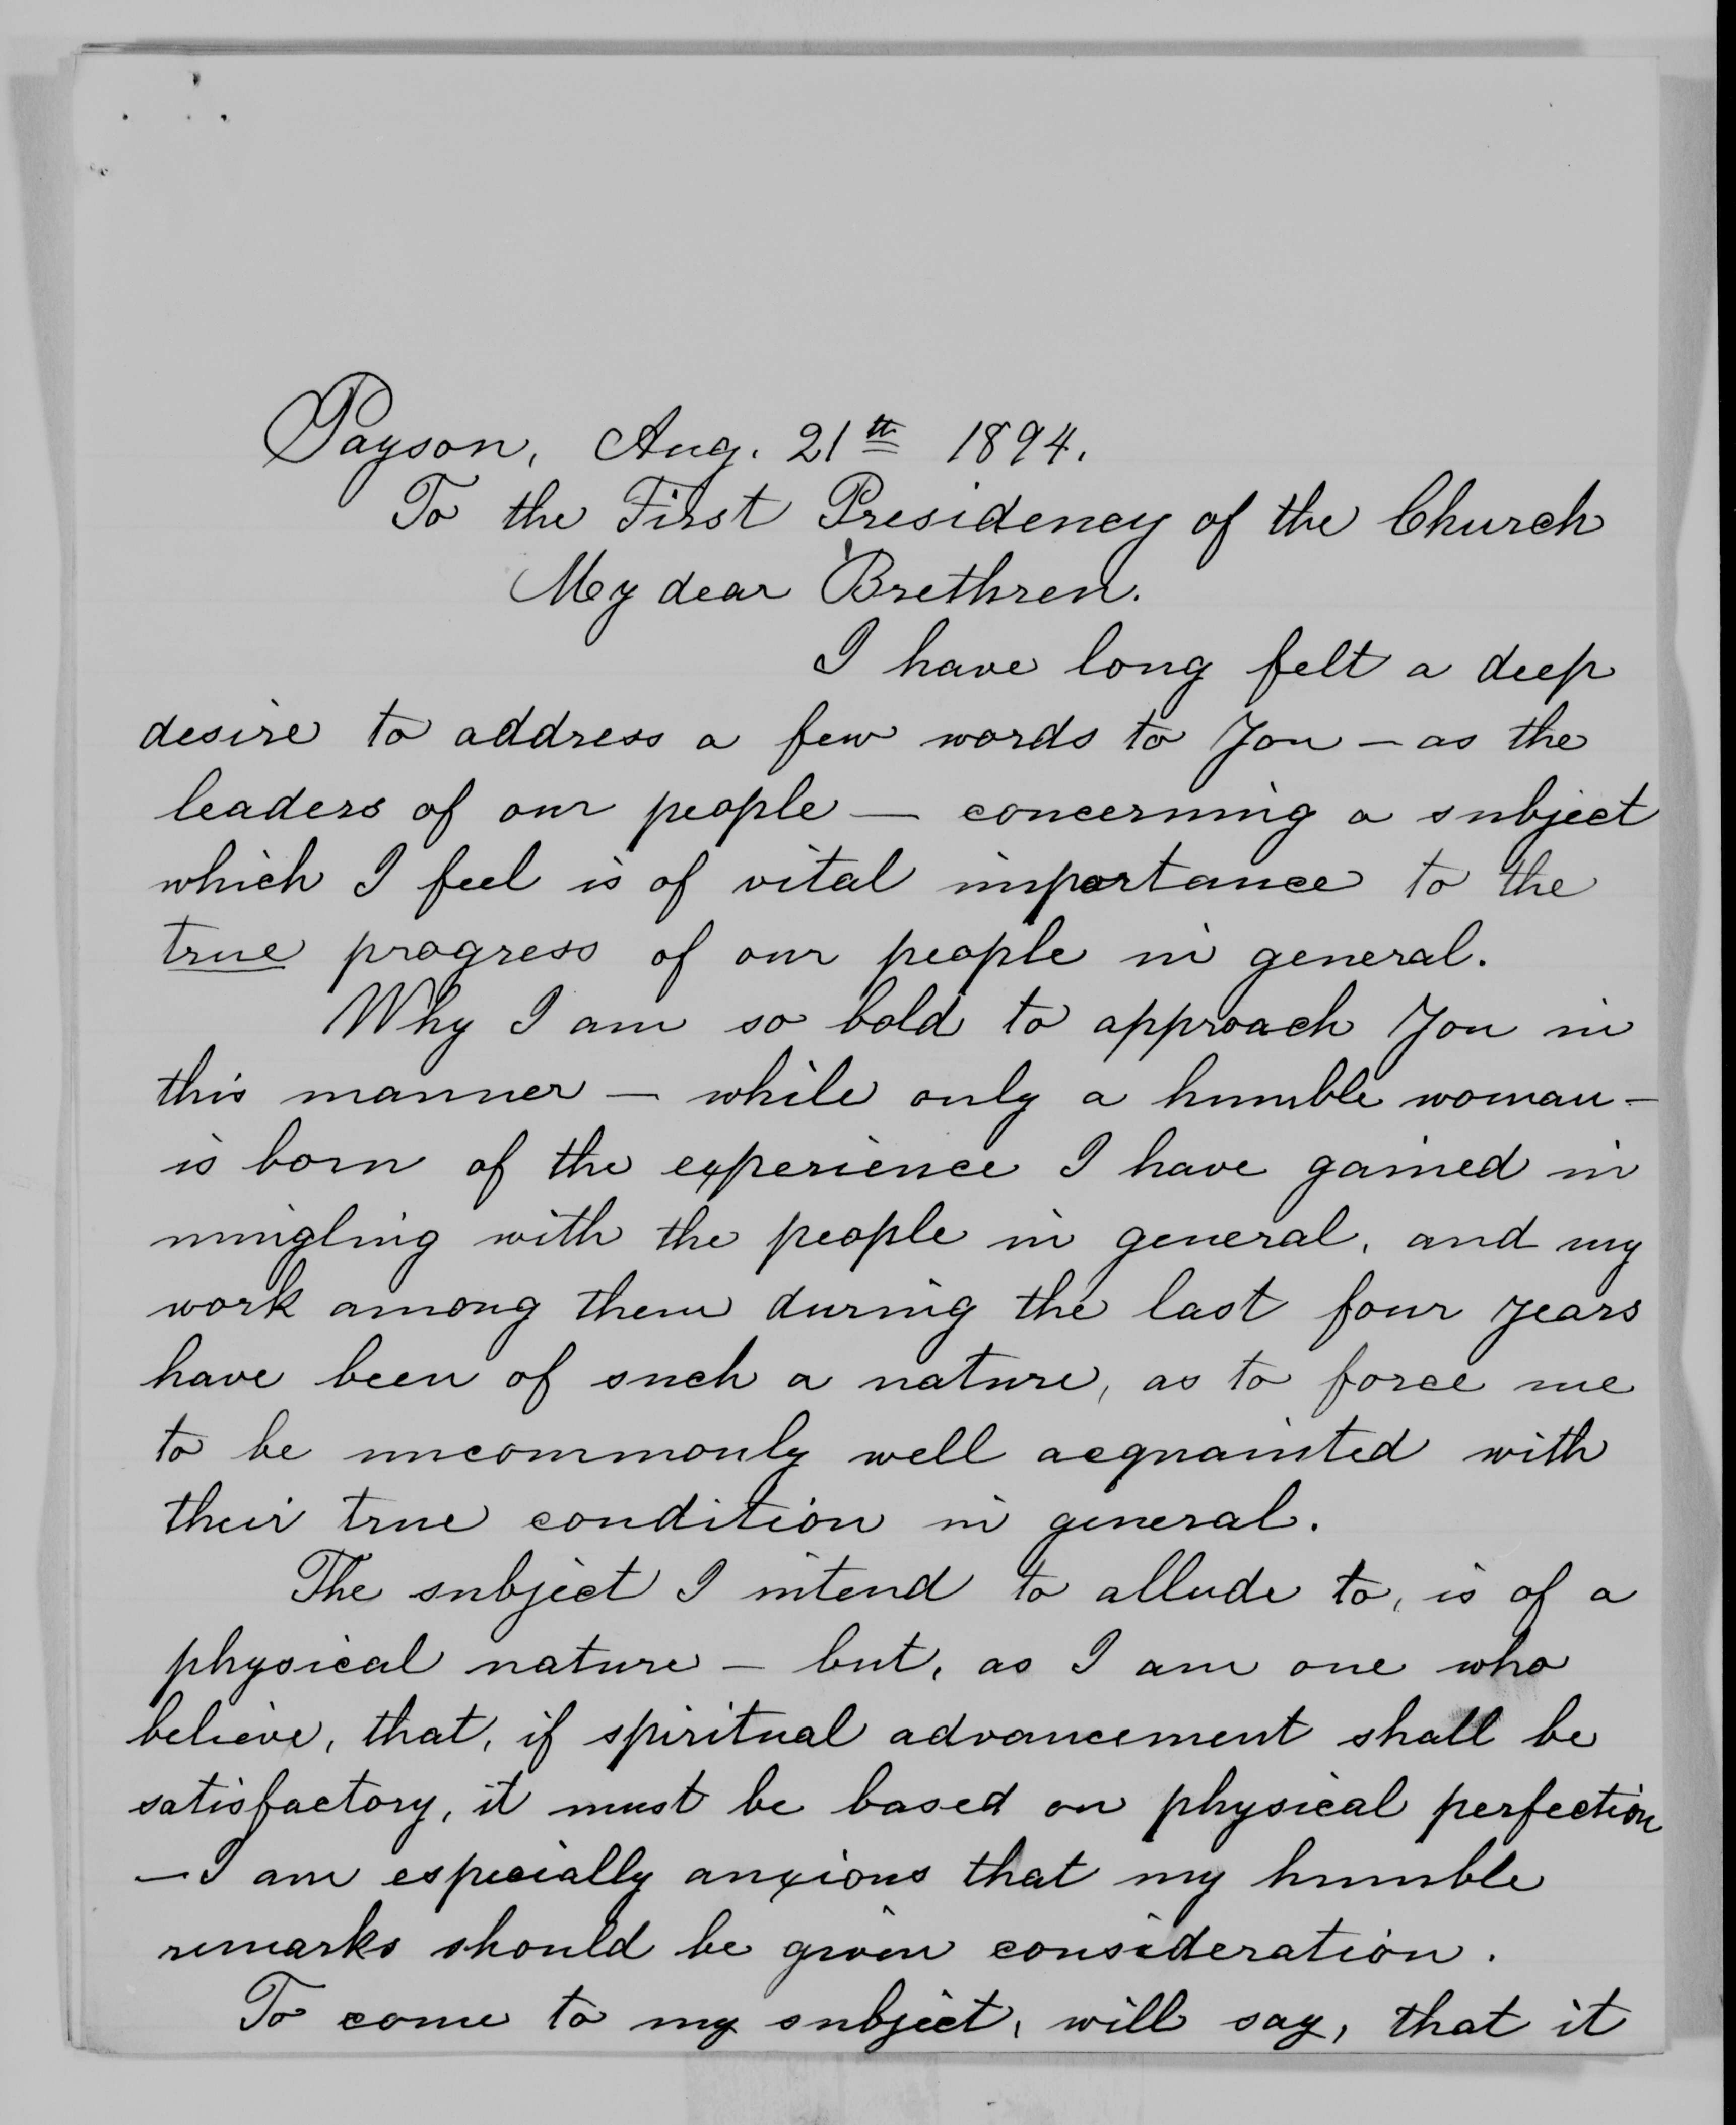 Payson, Aug. 21th 1894.
To the First Presidency of the Church
My dear Brethren.
I have long felt a deep
desire to address a few words to You — as the
leaders of our people — concerning a subject
which I feel is of vital importance to the
true progress of our people in general.
Why I am so bold to approach You in
this manner — while only a humble woman —
is born of the experience I have gained in
mingling with the people in general, and my
work among them during the last four years
have been of such a nature, as to force me
to be uncommonly well acquainted with
their true condition in general.
The subject I intend to allude to, is of a
physical nature — but, as I am one who
believe, that, if spiritual advancement shall be
satisfactory, it must be based on physical perfection
— I am especially anxious that my humble
remarks should be given consideration.
To come to my subject, will say, that it